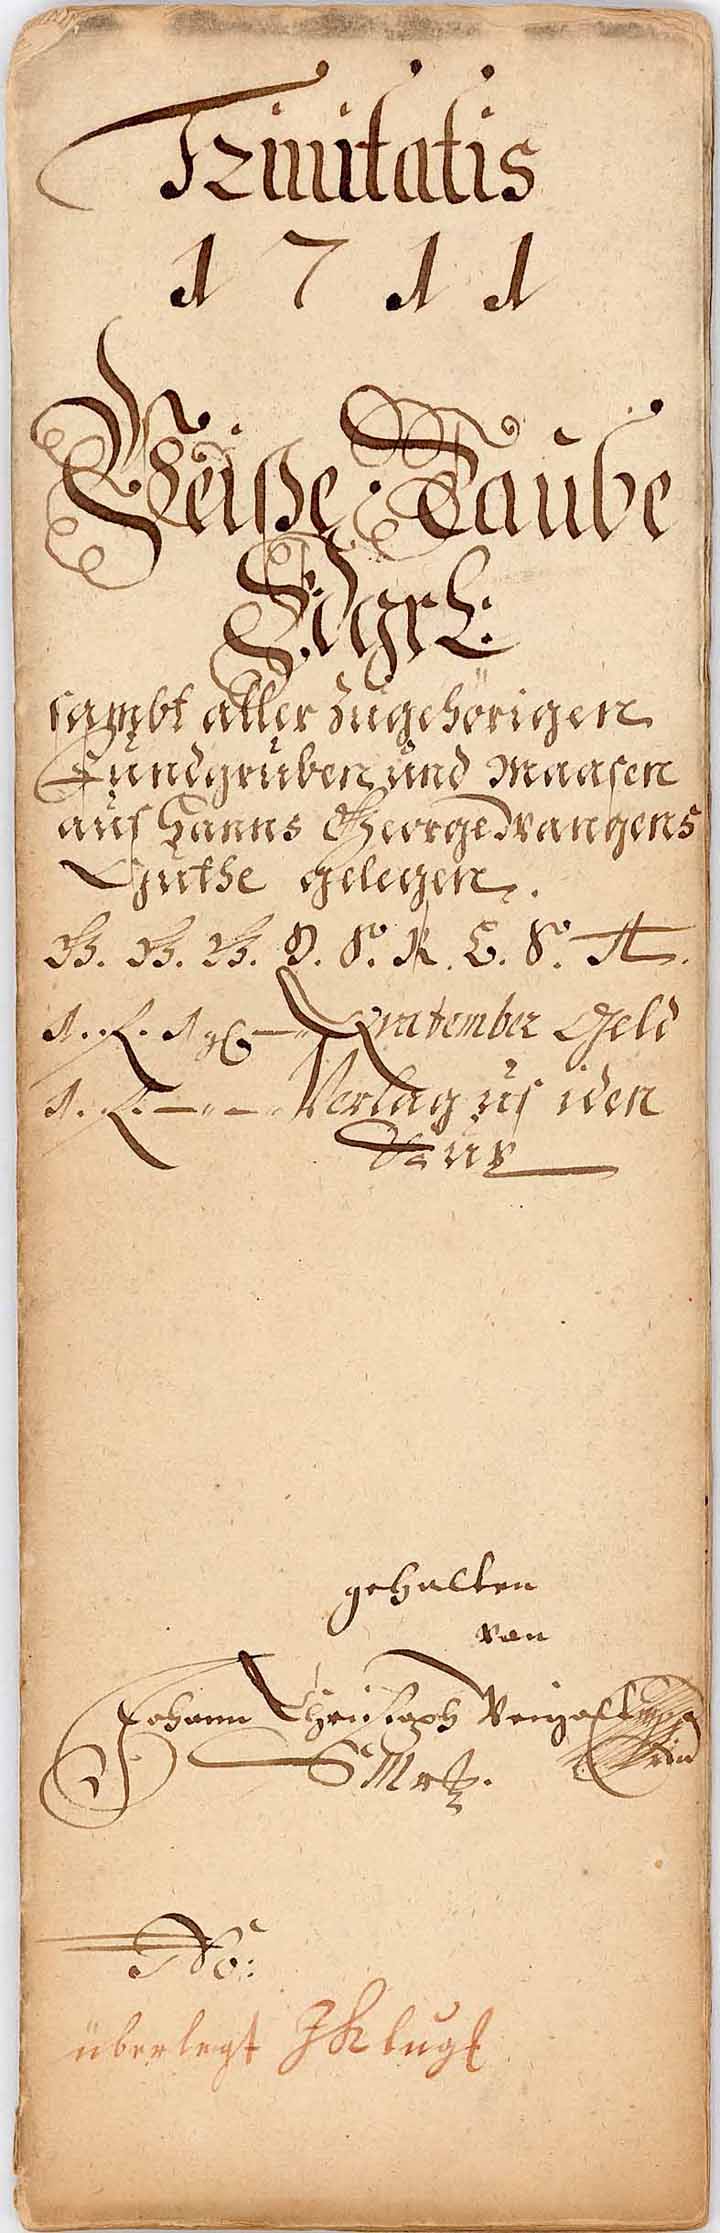 Trinitatis
1711
Weiße Taube
sambt aller zugehörigen
Fundgruben und Maasen
auf Hanns George Wangens
Guthe gelegen.
1. f. 1 gl — Quatember Geld
1. f. — — Verlag uf iden
Kux
gehalten
von
Johann Christoph
No:
überlegt